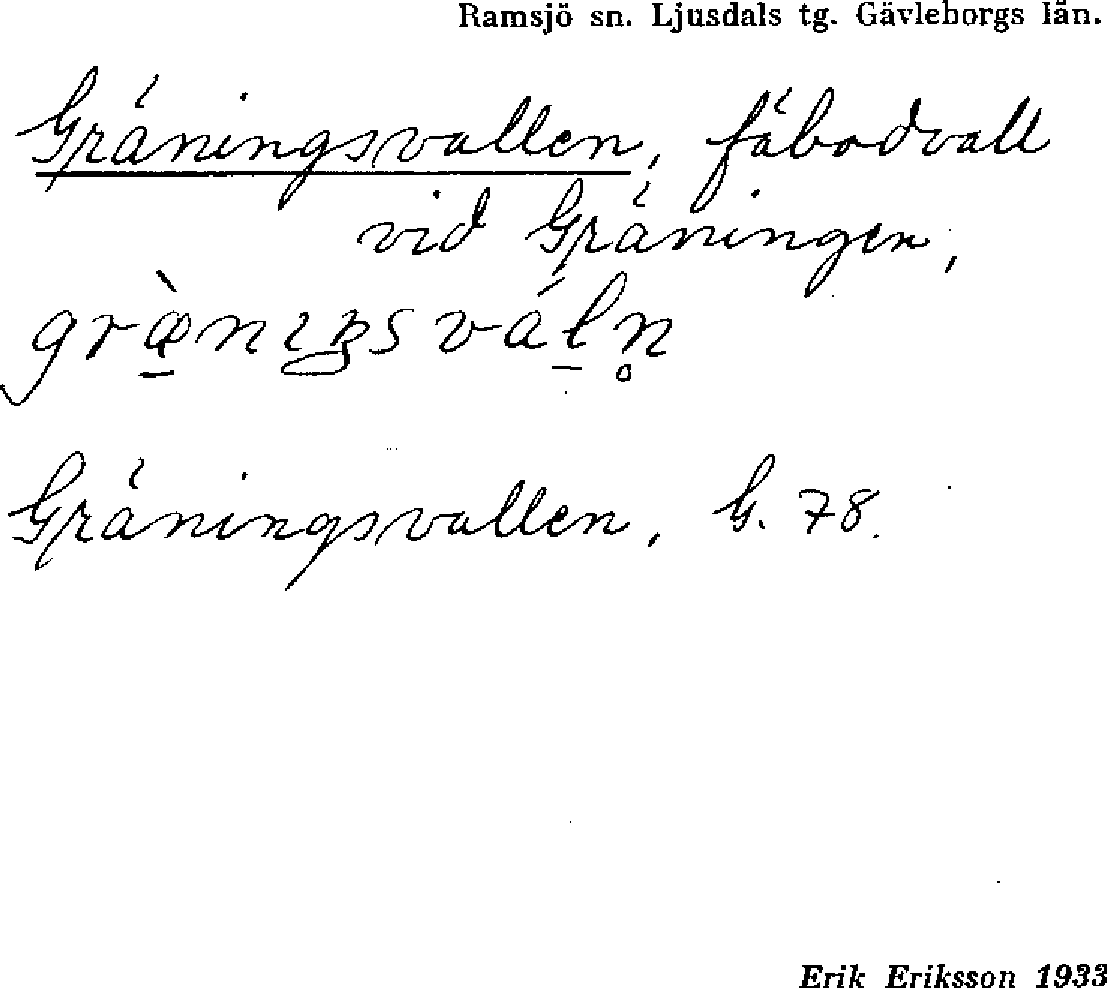 Ramsjö sn. Ljusdals tg. Gävleborgs län.
Gräningsvallen, fäbodvall
vid Gräningen,
græ̠̀nɪŋsvál̠n̥
Gräningsvallen, G. 78.
Erik Eriksson 1933